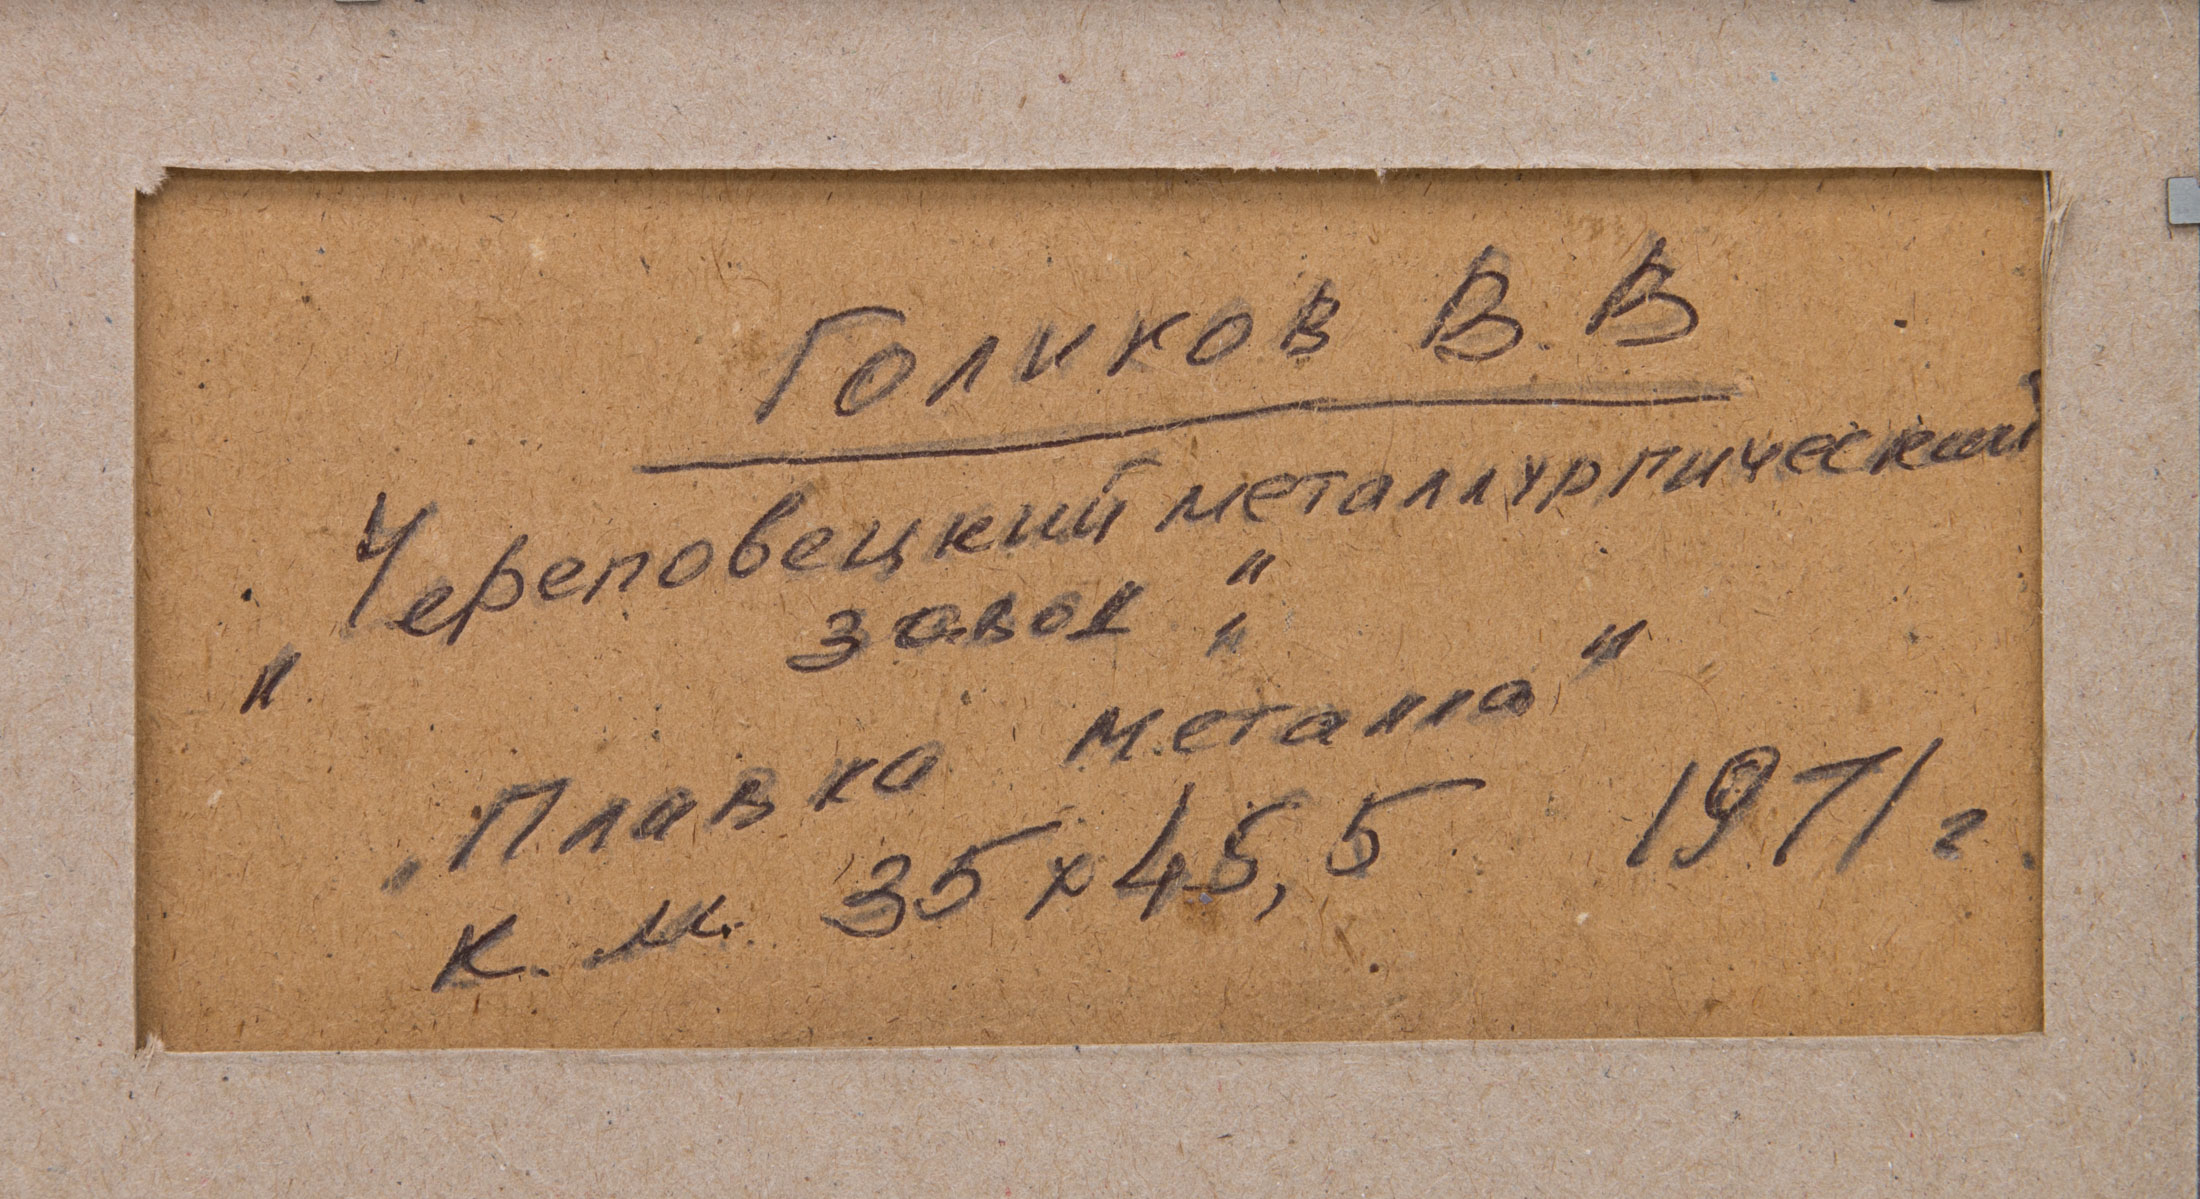 Голиков В. В
„Череповецкий металлургический
завод"
„Плавка металла"
к. м. 35 x 45,5 1971 г.